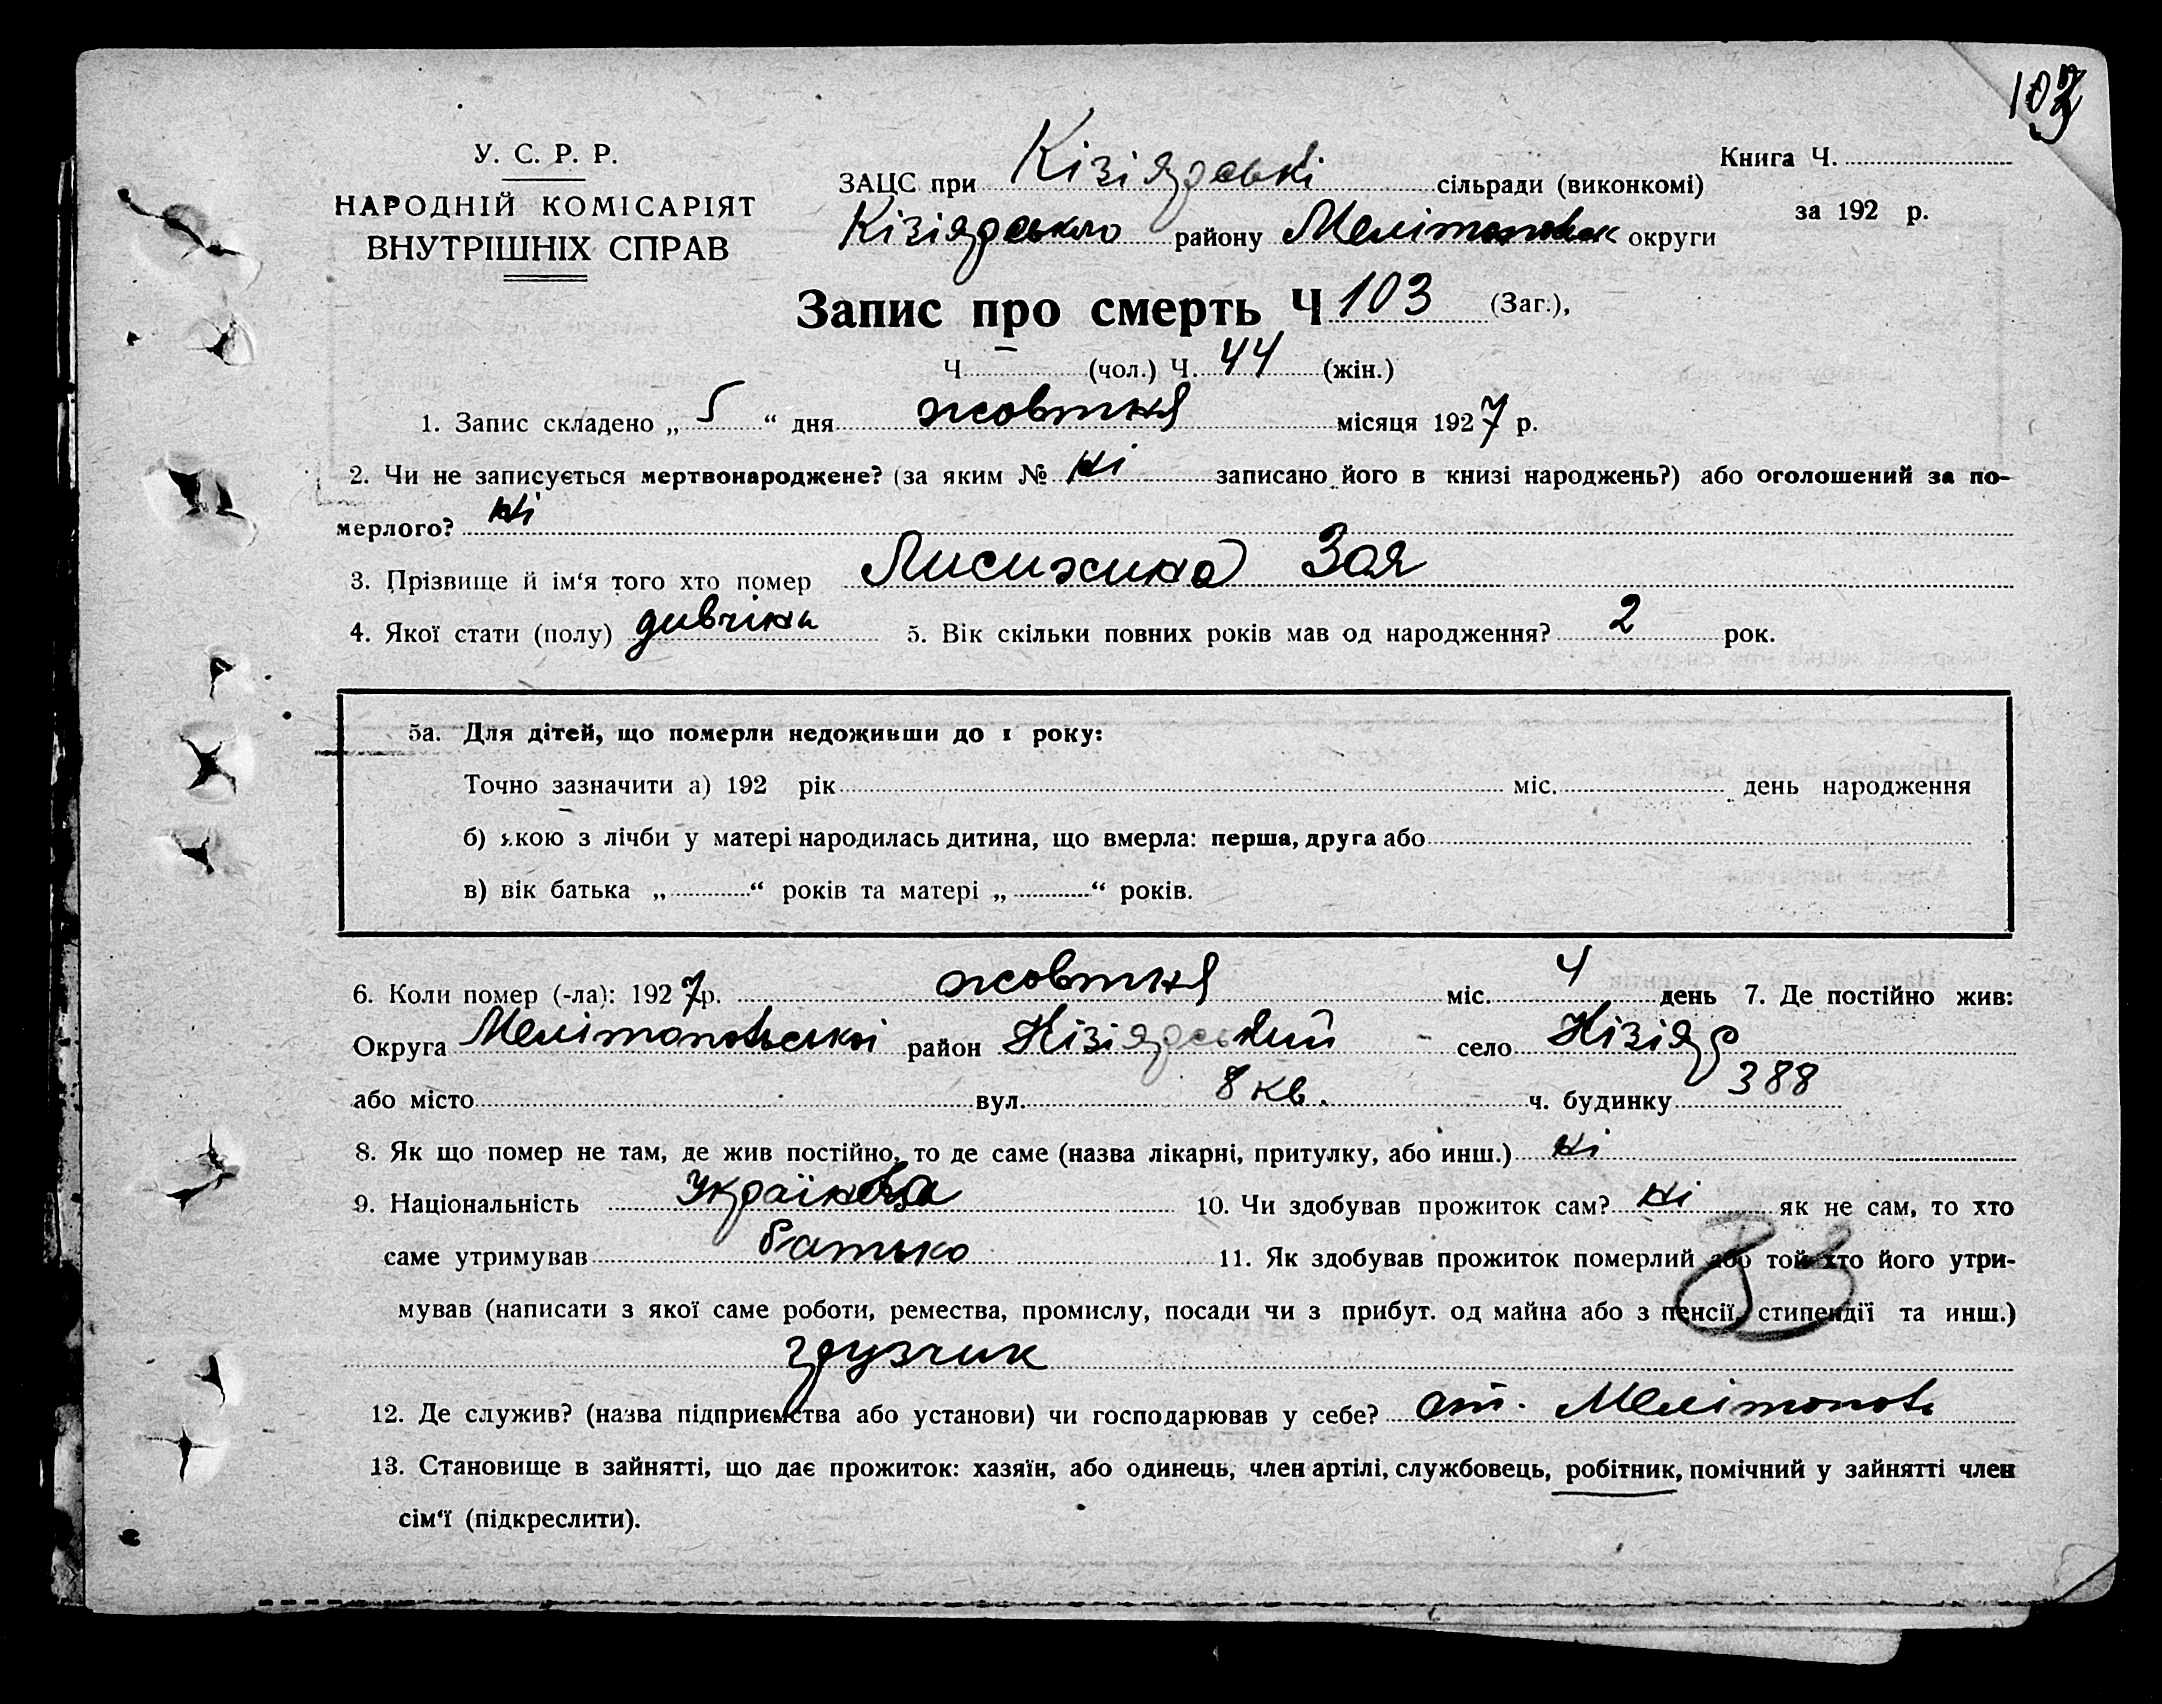 103
У. С. Р. Р.
НАРОДНІЙ КОМІСАРІЯТ
ВНУТРІШНІХ СПРАВ
ЗАЦС при Кізіярські сільради (виконкомі)
Кізіярського району Мелітопольск округи
Книга Ч.
за 192 р.
Запис про смерть Ч 103 (Заг.),
Ч — (чол.) Ч. 44 (жін.)
1. Запис складено „ 5 “ дня жовтня місяця 1927 р.
2. Чи не записується мертвонароджене? (за яким № ні записано його в книзі народжень?) або оголошений за по-
мерлого? ні
3. Прізвище й ім‘я того хто помер Лисижина Зоя
4. Якої стати (полу) дивчіна 5. Вік скільки повних років мав од народження? 2 рок.
5а. Для дітей, що померли недоживши до 1 року:
Точно зазначити а) 192 рік міс. день народження
б) якою з лічби у матері народилась дитина, що вмерла: перша, друга або
в) вік батька „ “ років та матері „ “ років.
6. Коли помер (-ла): 1927р. жовтня міс. 4 день 7. Де постійно жив:
Округа Мелітопольські район Кізіярський село Кізіяр
або місто вул. 8 кв. ч. будинку 388
8. Як що помер не там, де жив постійно, то де саме (назва лікарні, притулку, або инш.) ні
9. Національність Українка 10. Чи здобував прожиток сам? ні як не сам, то хто
саме утримував батько 11. Як здобував прожиток померлий або той хто його утри-
мував (написати з якої саме роботи, ремества, промислу, посади чи з прибут. од майна або з пенсії, стипендії та инш.)
83
грузчик
12. Де служив? (назва підприємства або установи) чи господарював у себе? ст. Мелітополь
13. Становище в зайнятті, що дає прожиток: хазяїн, або одинець, член артілі, службовець, робітник, помічний у зайнятті член
сім‘ї (підкреслити).